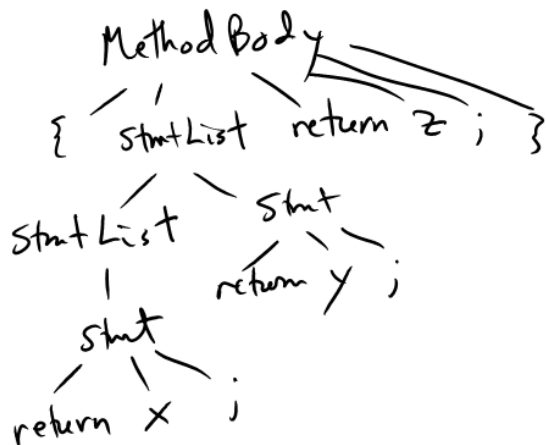 MethodBody
{ StmtList return z ; }
StmtList Stmt
return y ;
Stmt
return x ;